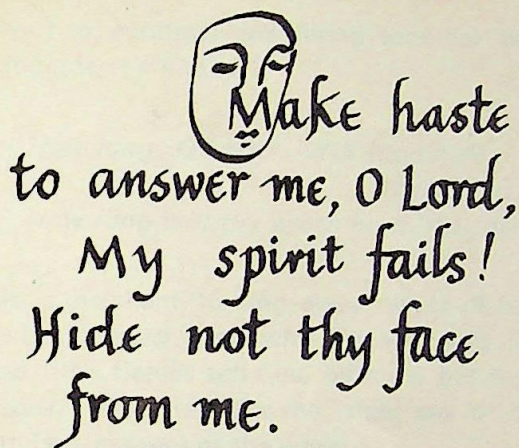 Make haste
to answer me, O Lord,
My spirit fails!
Hide not thy face
from me.